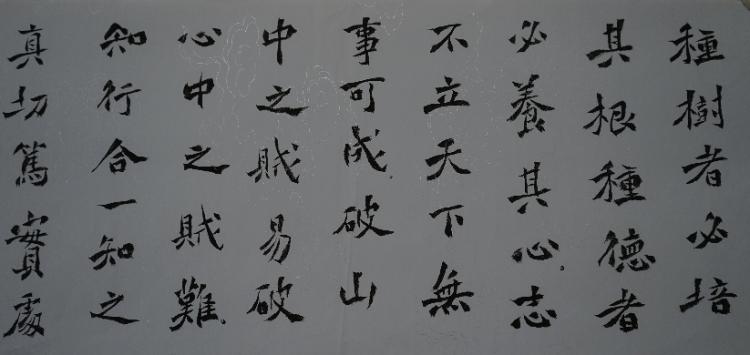 種樹者必培
其根種德者
必養其心志
不立天下無
事可成破山
中之賊易破
心中之賊難
知行合一知之
真切篤實處